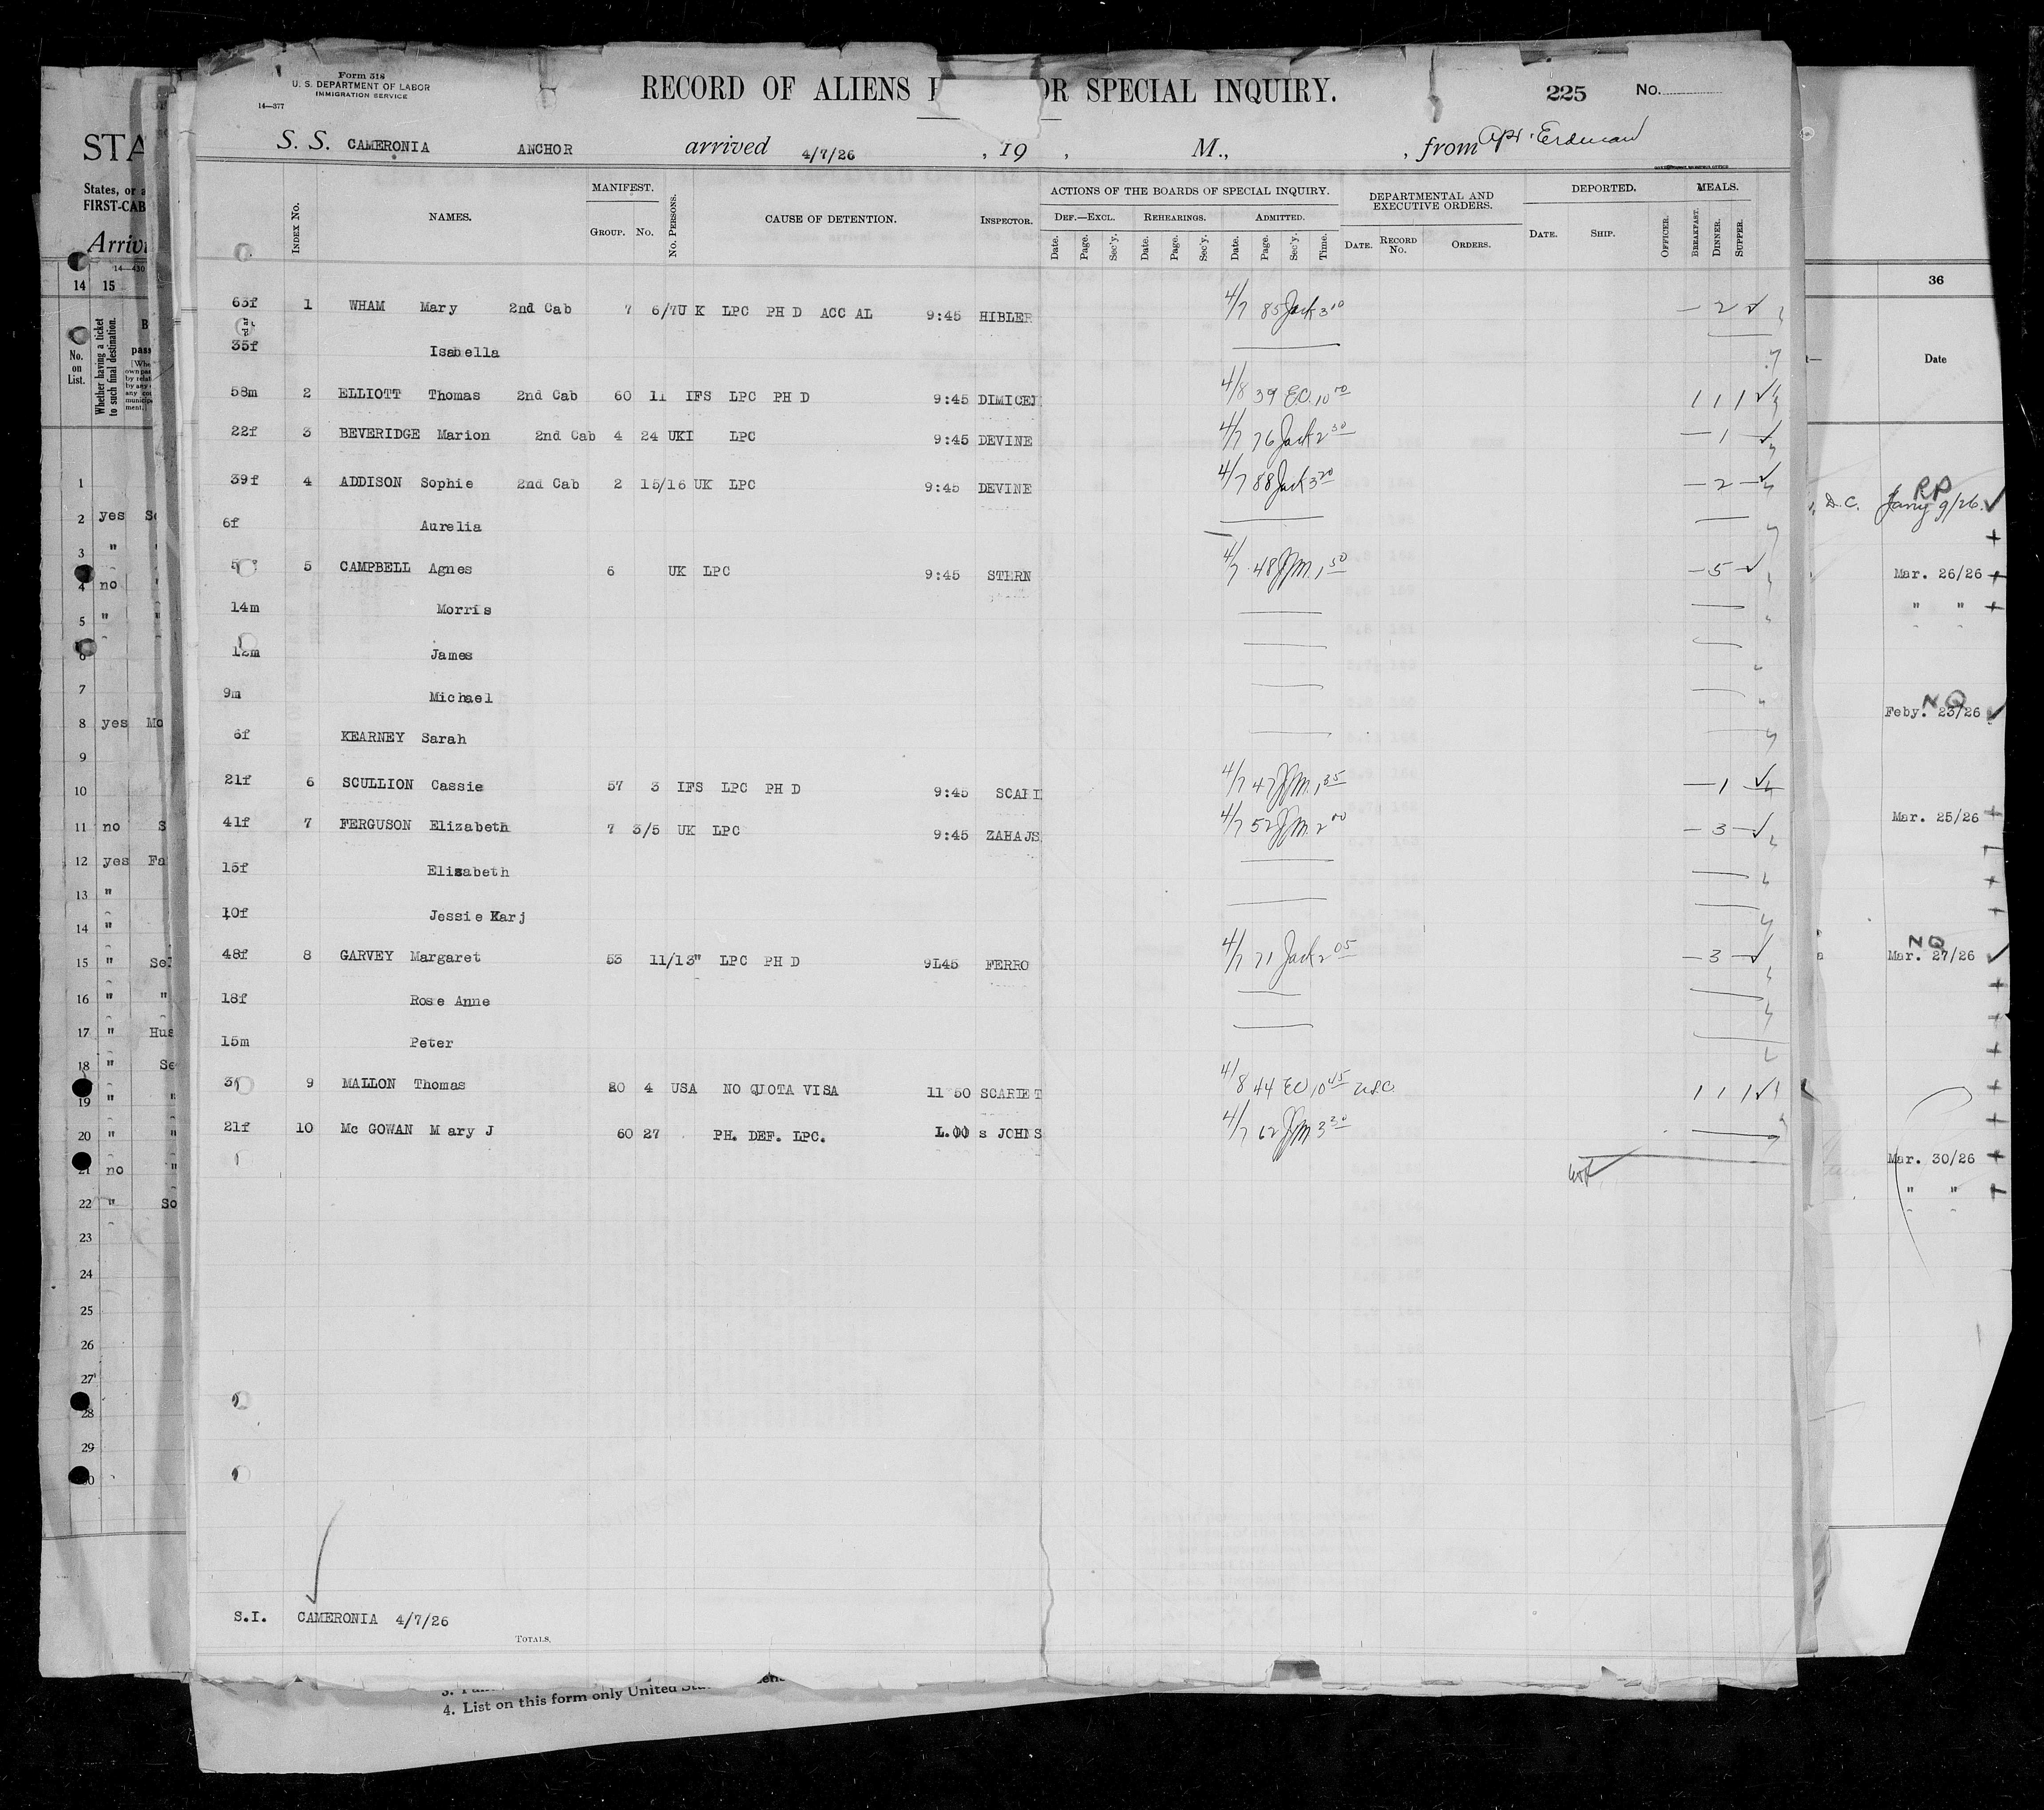 Form 518
U. S. DEPARTMENT OF LABOR
IMMIGRATION SERVICE
14—377
RECORD OF ALIENS OR SPECIAL INQUIRY.
225 No.
S. S. CAMERONIA ANCHOR arrived 4/7/26 , 19 , M., , from Erdman
INDEX No. NAMES. MANIFEST. GROUP. No. No. PERSONS. CAUSE OF DETENTION. INSPECTOR.
ACTIONS OF THE BOARDS OF SPECIAL INQUIRY.
DEF.—EXCL. REHEARINGS. ADMITTED.
Date. Page. Sec'y. Date. Page. Sec'y. Date. Page. Sec'y. Time.
DEPARTMENTAL AND EXECUTIVE ORDERS.
DATE. RECORD No. ORDERS.
DEPORTED.
DATE. SHIP. OFFICER.
MEALS.
BREAKFAST. DINNER. SUPPER.
63f 1 WHAM Mary 2nd Cab 7 6/7 U K LPC PH D ACC AL 9:45 HIBLER 4/7 85 Jack 3 10 — 2
35f Isabella
58m 2 ELLIOTT Thomas 2nd Cab 60 11 IFS LPC PH D 9:45 4/8 39 EO 10 1 1 1
22f 3 BEVERIDGE Marion 2nd Cab 4 24 UKI LPC 9:45 DEVINE 4/7 76 Jack 2 30 — 1
39f 4 ADDISON Sophie 2nd Cab 2 15/16 UK LPC 9:45 DEVINE 4/7 88 Jack 3 20 — 2 —
6f Aurelia
5 CAMPBELL Agnes 6 UK LPC 9:45 STERN 4/7 48 JJM 1 50 — 5
14m Morris
12m James
9m Michael
6f KEARNEY Sarah
21f 6 SCULLION Cassie 57 3 IFS LPC PH D 9:45 SCARI 4/7 47 JJM 1 35 — 1
41f 7 FERGUSON Elizabeth 7 3/5 UK LPC 9:45 ZAHAJS 4/7 52 JJM 2 00 — 3 —
15f Elisabeth
10f Jessie Karj
48f 8 GARVEY Margaret 53 11/13" LPC PH D 9L45 FERRO 4/7 71 Jack 2 05 — 3 —
18f Rose Anne
15m Peter
9 MALLON Thomas 20 4 USA NO QUOTA VISA 11 50 SCARIET 4/8 44 EO 10 45 USC 1 1 1
21f 10 Mc GOWAN Mary J 60 27 PH. DEF. LPC. s JOHNS 4/7 62 JJM 3 30
S.I. CAMERONIA 4/7/26
TOTALS,
STA
States, or a
FIRST-CAB
Arriv
14—430
14 15
No. on List.
Whether having a ticket to such final destination.
1
2 yes
3 "
4 no
5 "
6
7
8 yes Mo
9
10
11 no S
12 yes Fa
13 "
14 "
15 " Se
16 " "
17 " Hus
18 " Se
19 " "
20 " "
21 no "
22 " So
23
24
25
26
27
28
29
30
36
Date
D.C. RP Jany 9/26
Mar. 26/26
" "
NQ
Feby. 23/26
Mar. 25/26
NQ
Mar. 27/26
Mar. 30/26
" "
4. List on this form only United